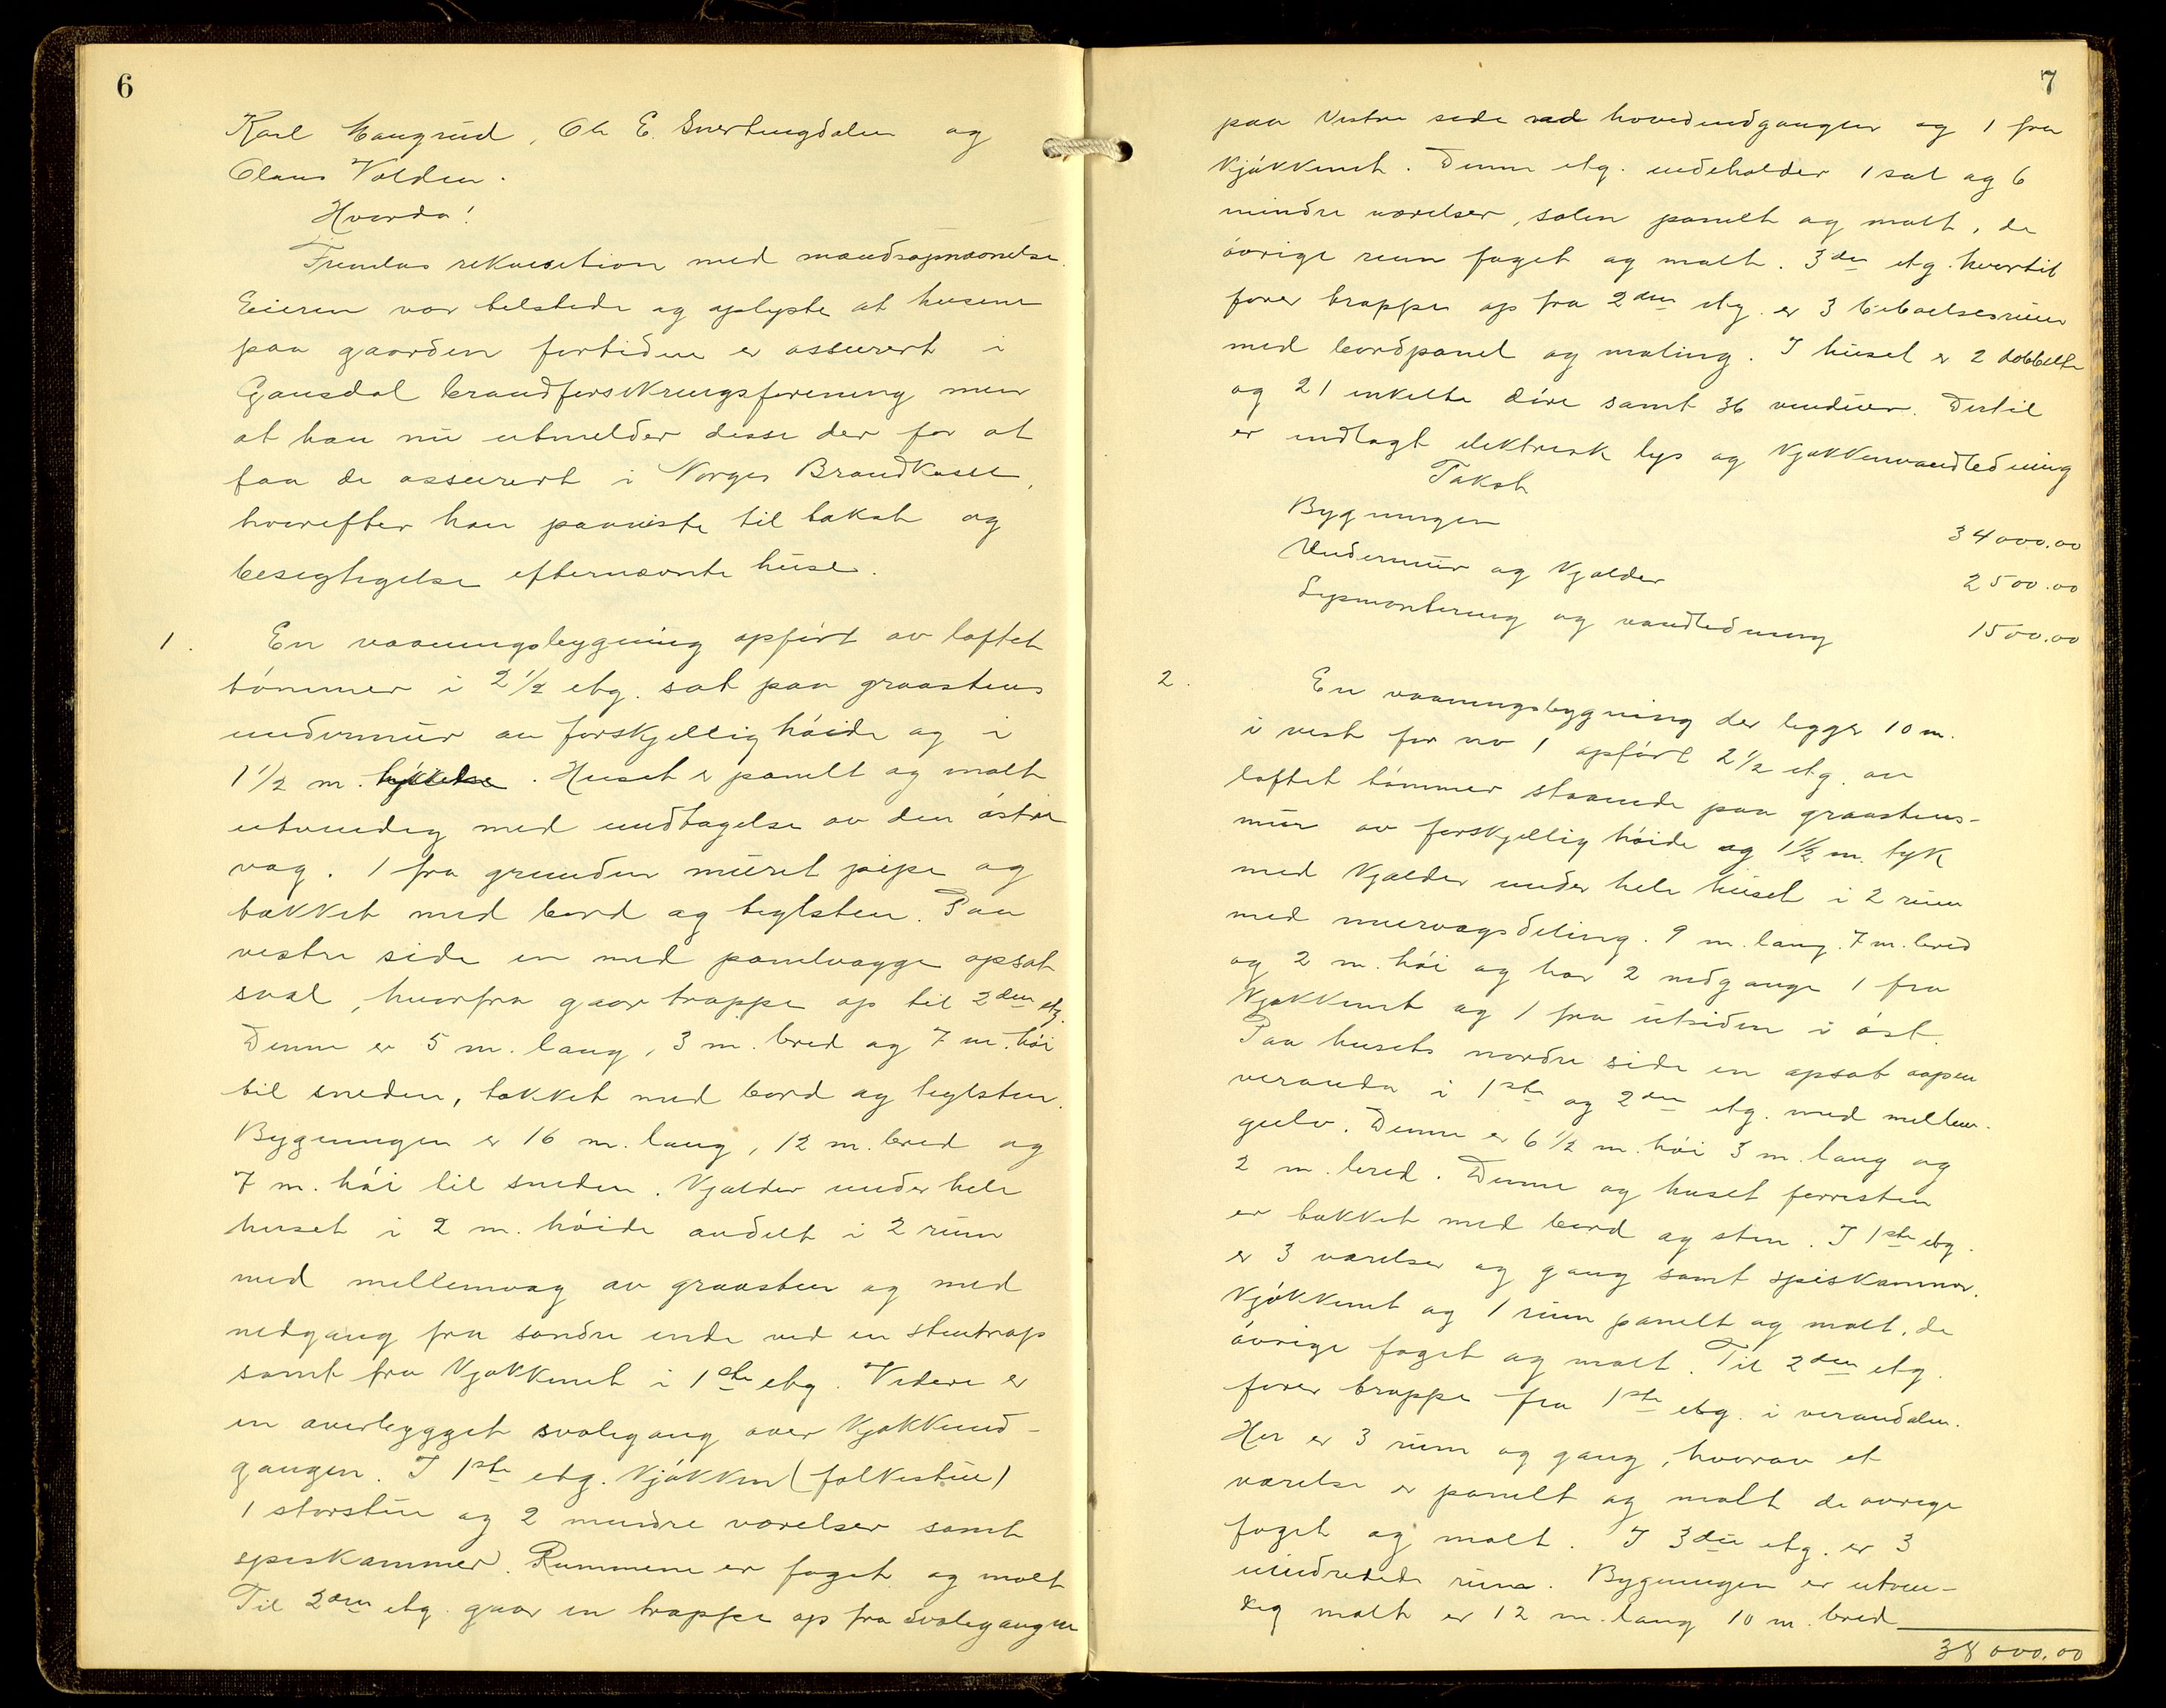 6
Karl Haugrud, Ole E. Svertingdalen og
Olaus Volden.
Hvorda!
Fremlas rekvisition med mandsopnævnelse.
Eieren var tilstede og oplyste at husene
paa gaarden fortiden er assurert i
Gausdal brandforsikringsforening men
at han nu utmelder disse der for at
faa de assurert i Norges Brandkasse,
hvorefter han paaviste til takst og
besigtigelse efternævnte huse.
1. En vaaningsbygning opført av laftet
tømmer i 2 1/2 etg. sat paa graastens
undermur av forskjellig høide og i
1 1/2 m. tykkelse. Huset er panelt og malt
utvendig med undtagelse av den østre
væg. 1 fra grunden muret pipe og
tækket med bord og teglsten. Paa
vestre side en med panelvægge opsat
sval, hvorfra gaar trappe op til 2den etg.
Denne er 5 m. lang, 3 m. bred og 7 m. høi
til sneden, tækket med bord og teglsten.
Bygningen er 16 m. lang, 12 m. bred og
7 m. høi til sneden. Kjælder under hele
huset i 2 m. høide avdelt i 2 rum
med mellemvæg av graasten og med
nedgang fra søndre ende ved en stentrap
samt fra kjøkkenet i 1ste etg. Videre er
en overbygget svalegang over kjøkkenind-
gangen. I 1ste etg. kjøkken (folkestue)
1 storstue og 2 mindre værelser samt
spiskammer. Rummene er faget og malt
Til 2den etg. gaar en trappe op fra svalegangen
7
paa vestre side ved hovedindgangen og 1 fra
kjøkkenet. Denne etg. indeholder 1 sal og 6
mindre værelser, salen panelt og malt, de
øvrige rum faget og malt. 3die etg. hvortil
fører trappe op fra 2den etg. er 3 beboelsesrum
med bordpanel og maling. I huset er 2 dobbelte
og 21 enkelte døre samt 36 vinduer. Dertil
er indlagt elektrisk lys og kjøkkenvandledning
Takst
Bygningen 34000.00
Undermur og kjælder 2500.00
Lysmontering og vandledning 1500.00
2. En vaaningsbygning der ligger 10 m.
i vest for no 1 opført 2 1/2 etg. av
laftet tømmer staaende paa graastens-
mur av forskjellig høide og 1 1/2 m. tyk
med kjælder under hele huset i 2 rum
med murvægsdeling. 9 m. lang. 7 m. bred
og 2 m. høi og har 2 nedgange 1 fra
kjøkkenet og 1 fra utsiden i øst.
Paa husets nordre side en opsat aapen
veranda i 1ste og 2den etg. med mellem-
gulv. Denne er 6 1/2 m. høi 3 m. lang og
2 m. bred. Denne og huset forresten
er tækket med bord og sten. I 1ste etg.
er 3 værelser og gang samt spiskammer.
Kjøkkenet og 1 rum panelt og malt, de
øvrige faget og malt. Til 2den etg.
fører trappe fra 1ste etg. i verandaen.
Her er 3 rum og gang, hvorav et
værelse er panelt og malt de øvrige
faget og malt. I 3die etg. er 3
uindredede rum. Bygningen er utven-
dig malt er 12 m. lang 10 m. bred
38000.00